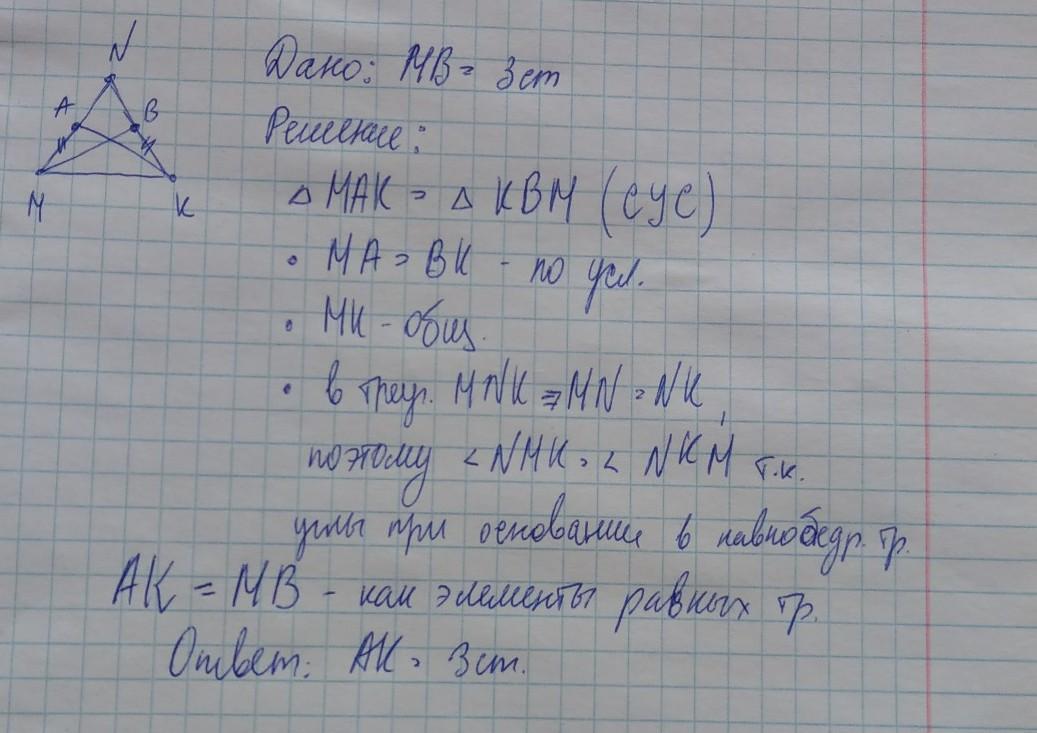 N
A
B
M
K
Дано: MB = 3 см
Решение:
△ MAK = △ KBM (СУС)
• MA = BK - по усл.
• MK - общ.
• в треуг. MNK => MN = NK,
поэтому < NMK = < NKM т.к.
углы при основании в равнобедр. тр.
AK = MB - как элементы равных тр.
Ответ: AK = 3 см.